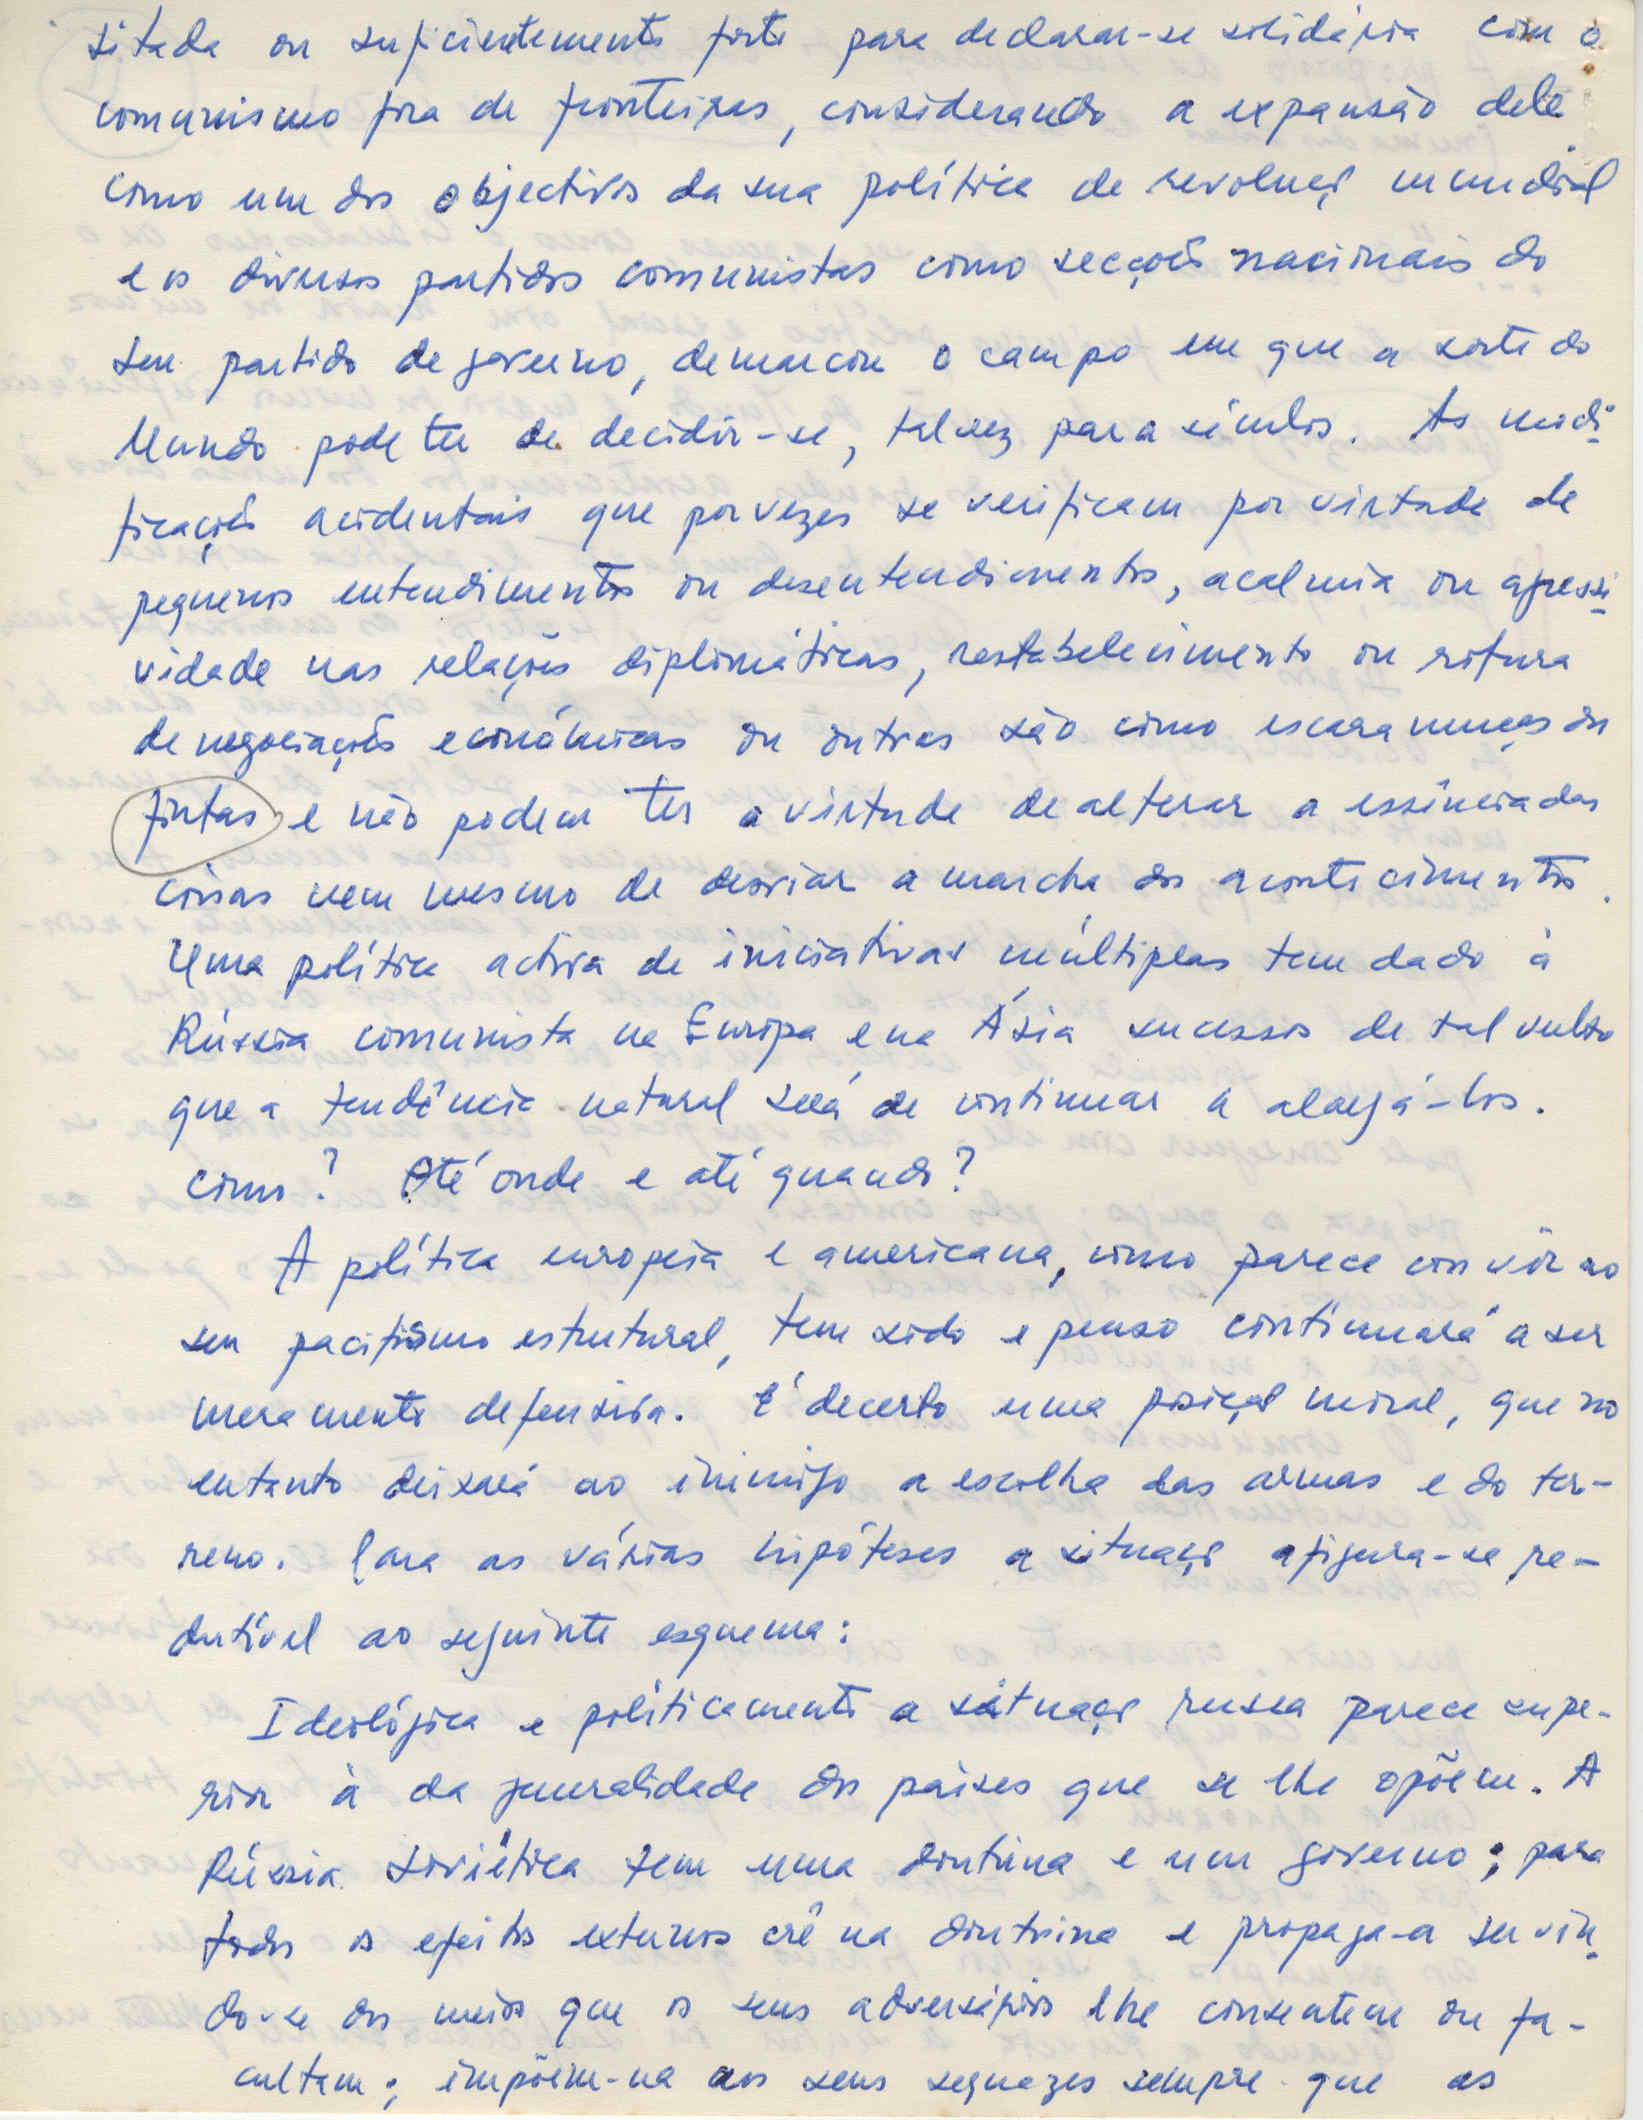 sitada ou suficientemente forte para declarar-se solidária com o
comunismo fora de fronteiras, considerando a expansão dele
como um dos objectivos da sua política de revolução mundial
e os diversos partidos comunistas como secções nacionais do
seu partido de governo, demarcou o campo em que a sorte do
Mundo pode ter de decidir-se, talvez para séculos. As modi-
ficações acidentais que por vezes se verificam por virtude de
pequenos entendimentos ou desentendimentos, acalmia ou agressi-
vidade nas relações diplomáticas, restabelecimento ou rotura
de negociações económicas ou outras são como escaramuças ou
fintas e não podem ter a virtude de alterar a essência das
coisas nem mesmo de desviar a marcha dos acontecimentos.
Uma política activa de iniciativas múltiplas tem dado à
Rússia comunista na Europa e na Ásia sucessos de tal vulto
que a tendência natural será de continuar a alargá-los.
Como? Até onde e até quando?
A política europeia e americana, como parece convir ao
seu pacifismo estrutural, tem sido e penso continuará a ser
meramente defensiva. É decerto uma posição moral, que no
entanto deixará ao inimigo a escolha das armas e do ter-
reno. Para as várias hipóteses a situação afigura-se re-
dutível ao seguinte esquema:
Ideológica e políticamente a situação russa parece supe-
rior à da generalidade dos países que se lhe opõem. A
Rússia soviética tem uma doutrina e um governo; para
todos os efeitos externos crê na doutrina e propaga-a servin-
do-se dos meios que os seus adversários lhe consentem ou fa-
cultam; impõem-na aos seus sequazes sempre que as